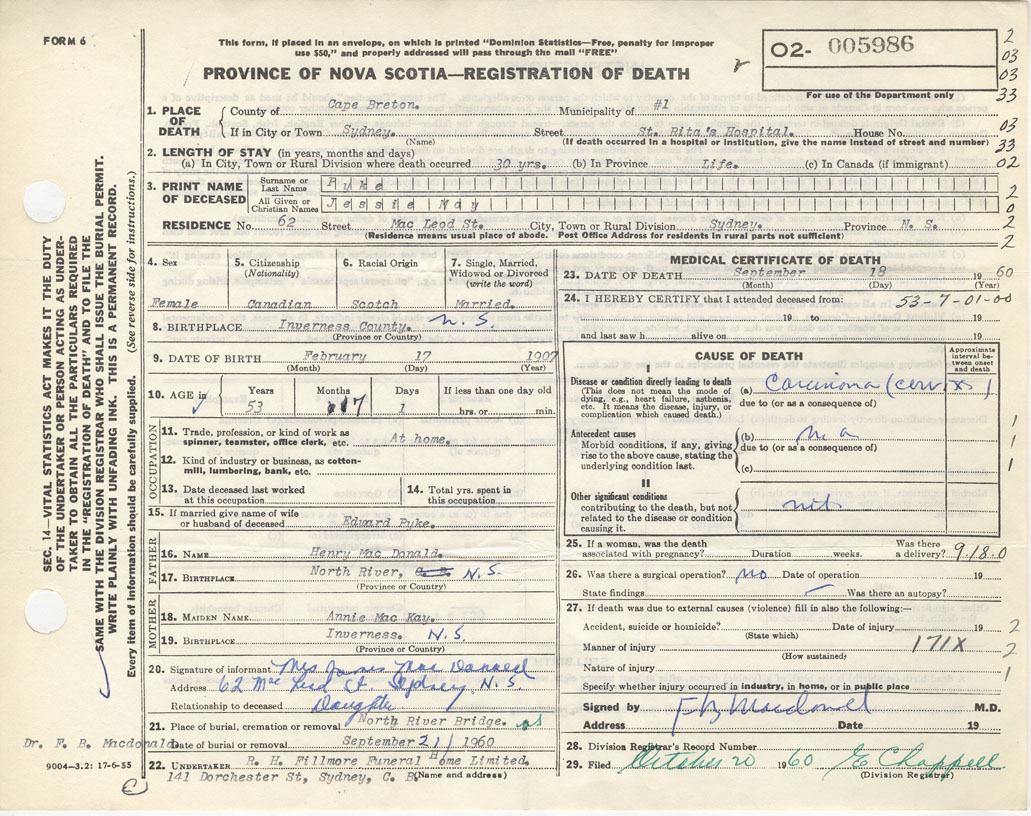 FORM 6
This form, if placed in an envelope, on which is printed "Dominion Statistics—Free, penalty for improper
use $50," and properly addressed will pass through the mail "FREE"
PROVINCE OF NOVA SCOTIA—REGISTRATION OF DEATH
O2- 005986
For use of the Department only
2
03
03
33
03
33
02
2
0
2
2
SEC. 14—VITAL STATISTICS ACT MAKES IT THE DUTY
OF THE UNDERTAKER OR PERSON ACTING AS UNDER-
TAKER TO OBTAIN ALL THE PARTICULARS REQUIRED
IN THE "REGISTRATION OF DEATH" AND TO FILE THE
SAME WITH THE DIVISION REGISTRAR WHO SHALL ISSUE THE BURIAL PERMIT.
WRITE PLAINLY WITH UNFADING INK. THIS IS A PERMANENT RECORD.
Every item of information should be carefully supplied. (See reverse side for instructions.)
1. PLACE OF DEATH
County of Cape Breton. Municipality of #1
If in City or Town Sydney. Street St. Rita's Hospital. House No.
(Name) (If death occurred in a hospital or institution, give the name instead of street and number)
2. LENGTH OF STAY (in years, months and days)
(a) In City, Town or Rural Division where death occurred 30 yrs. (b) In Province Life. (c) In Canada (if immigrant)
3. PRINT NAME OF DECEASED
Surname or Last Name Pyke
All Given or Christian Names Jessie May
RESIDENCE No. 62 Street Mac Leod St. City, Town or Rural Division Sydney. Province N. S.
(Residence means usual place of abode. Post Office Address for residents in rural parts not sufficient)
4. Sex
Female
5. Citizenship
(Nationality)
Canadian
6. Racial Origin
Scotch
7. Single, Married,
Widowed or Divorced
(write the word)
Married.
8. BIRTHPLACE Inverness County. N.S.
(Province or Country)
9. DATE OF BIRTH February 17 1907
(Month) (Day) (Year)
10. AGE in
Years Months Days If less than one day old
53 7 1 hrs. or min.
OCCUPATION
11. Trade, profession, or kind of work as
spinner, teamster, office clerk, etc. At home.
12. Kind of industry or business, as cotton-
mill, lumbering, bank, etc.
13. Date deceased last worked
at this occupation
14. Total yrs. spent in
this occupation
15. If married give name of wife
or husband of deceased Edward Pyke.
FATHER
16. NAME Henry Mac Donald.
17. BIRTHPLACE North River, N.S.
(Province or Country)
MOTHER
18. MAIDEN NAME Annie Mac Kay.
19. BIRTHPLACE Inverness. N.S
(Province or Country)
20. Signature of informant Mrs James Mac Donald
Address 62 Mac Leod St. Sydney, N.S.
Relationship to deceased Daughter
21. Place of burial, cremation or removal North River Bridge.
Date of burial or removal September 21 / 1960
22. UNDERTAKER R. H. Fillmore Funeral Home Limited.
141 Dorchester St, Sydney, C. B. (Name and address)
Dr. F. B. Macdonald.
9004—3.2: 17-6-55
MEDICAL CERTIFICATE OF DEATH
23. DATE OF DEATH September 18 1960
(Month) (Day) (Year)
24. I HEREBY CERTIFY that I attended deceased from: 53-7-01-00
19 to 19
and last saw h alive on 19
CAUSE OF DEATH
Approximate
interval be-
tween onset
and death
I
Disease or condition directly leading to death
(This does not mean the mode of
dying, e.g., heart failure, asthenia,
etc. It means the disease, injury, or
complication which caused death.)
(a) Carcinoma (cervix)
due to (or as a consequence of)
Antecedent causes
Morbid conditions, if any, giving
rise to the above cause, stating the
underlying condition last.
(b)
due to (or as a consequence of)
(c)
1
1
1
II
Other significant conditions
contributing to the death, but not
related to the disease or condition
causing it.
25. If a woman, was the death
associated with pregnancy? Duration weeks. Was there
a delivery? 9.18.0
26. Was there a surgical operation? no Date of operation 19
State findings Was there an autopsy?
27. If death was due to external causes (violence) fill in also the following:—
Accident, suicide or homicide? Date of injury 19
(State which)
2
Manner of injury 171X
(How sustained)
2
Nature of injury
1
Specify whether injury occurred in industry, in home, or in public place
Signed by F B Macdonald M.D.
Address Date 19
28. Division Registrar's Record Number
29. Filed October 20 1960 E Chappell
(Division Registrar)